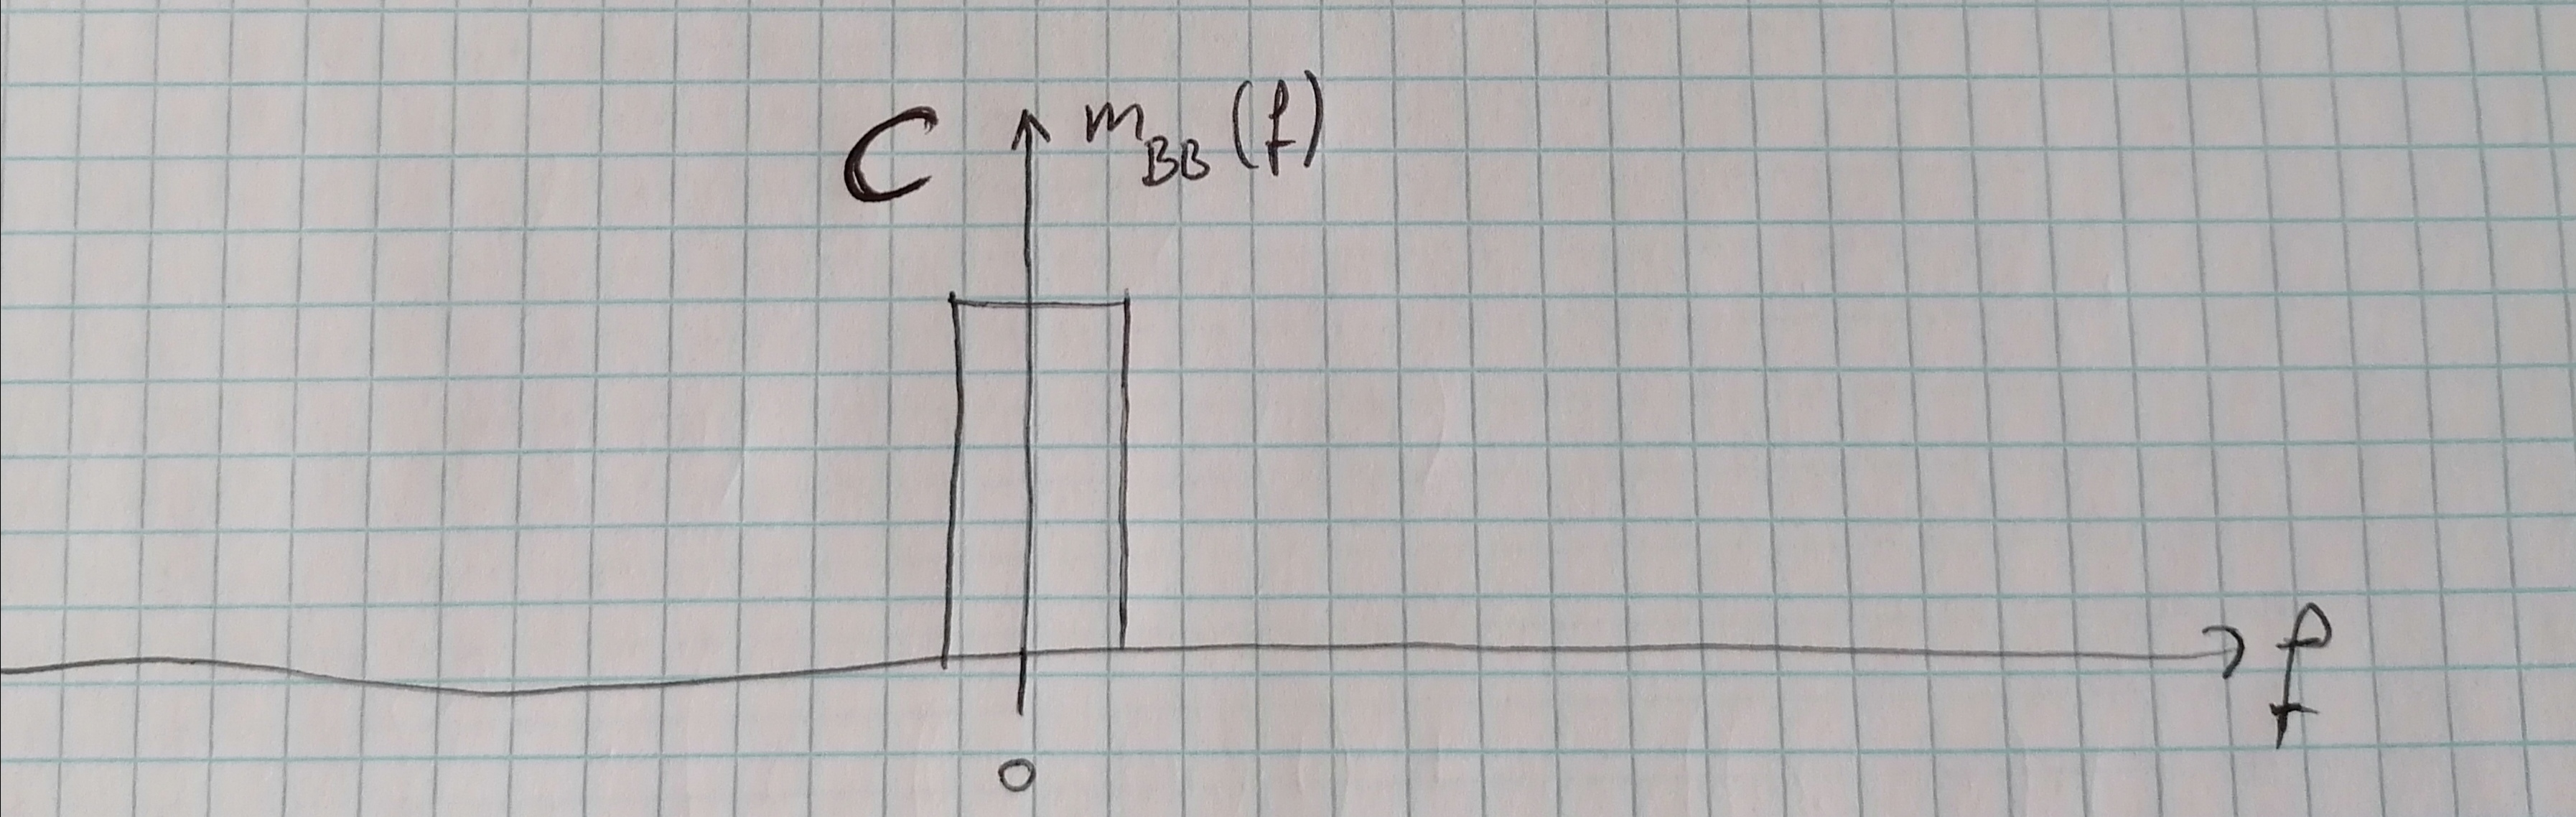 C m_BB (f)
f
0